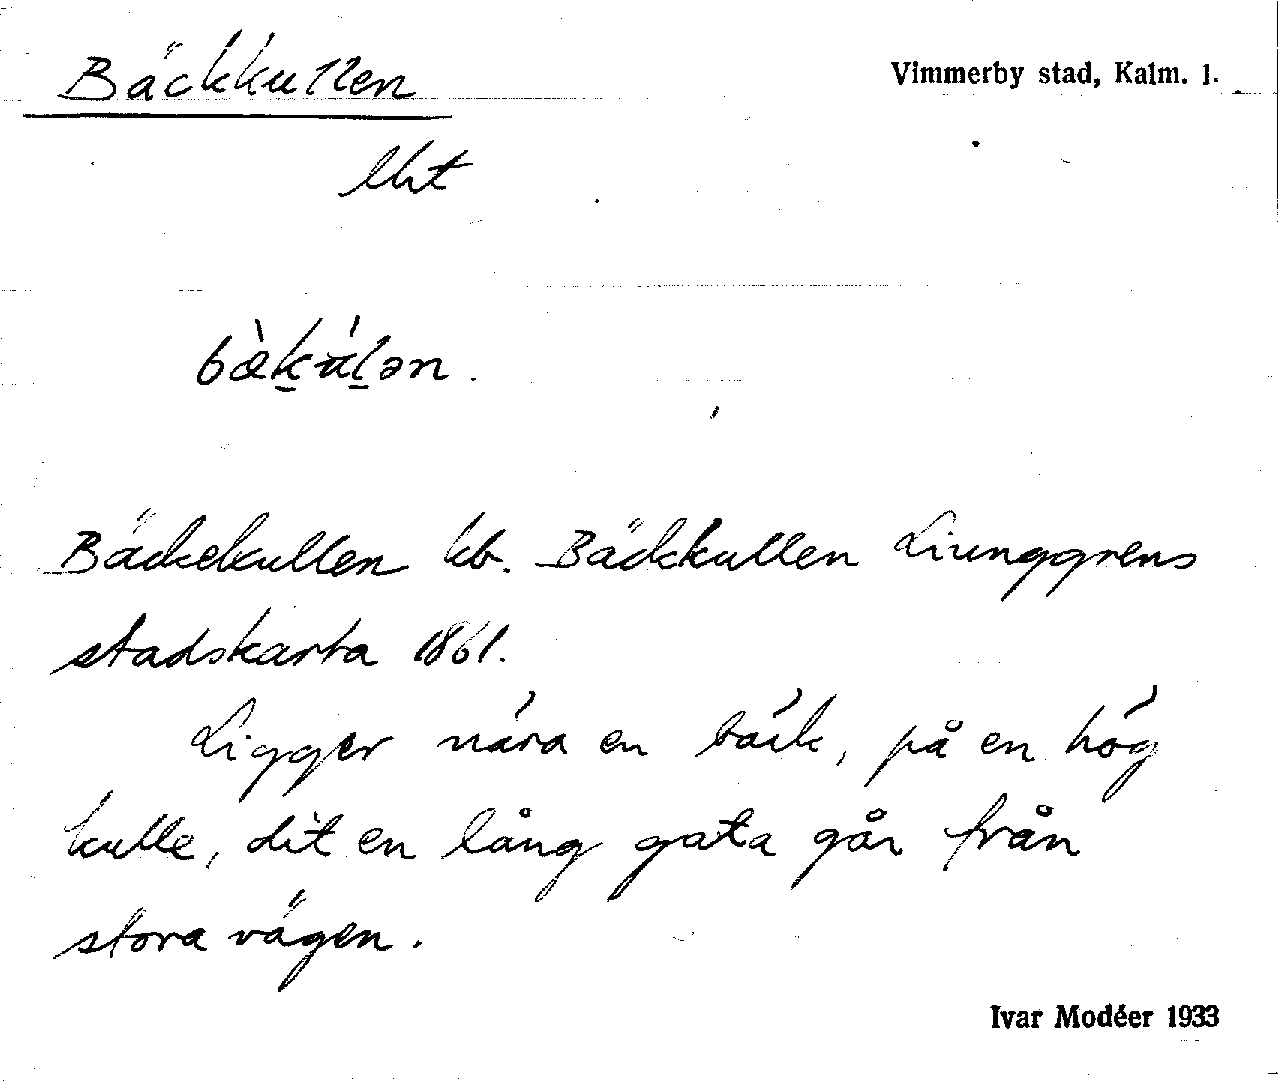 Bäckkullen
Vimmerby stad, Kalm. l.
lht
bæ̀k̲ál̲ən.
Bäckekullen kb. Bäckkullen Liunggrens
stadskarta 1861.
Ligger nära en bäck, på en hög
kulle, dit en lång gata går från
stora vägen.
Ivar Modéer 1933